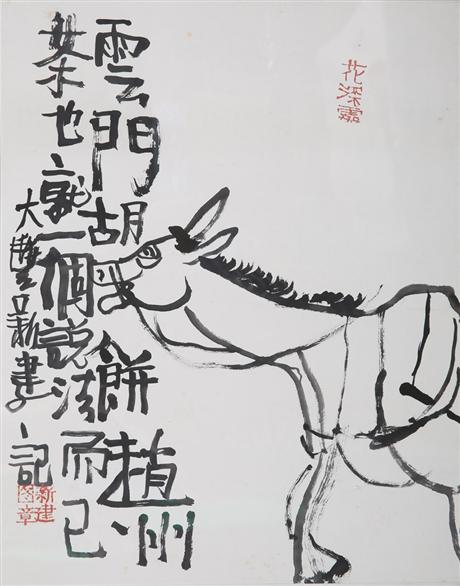 花深處
雲門胡餅趙州
茶也就一個說法而已
大豐新建記
新建圖章